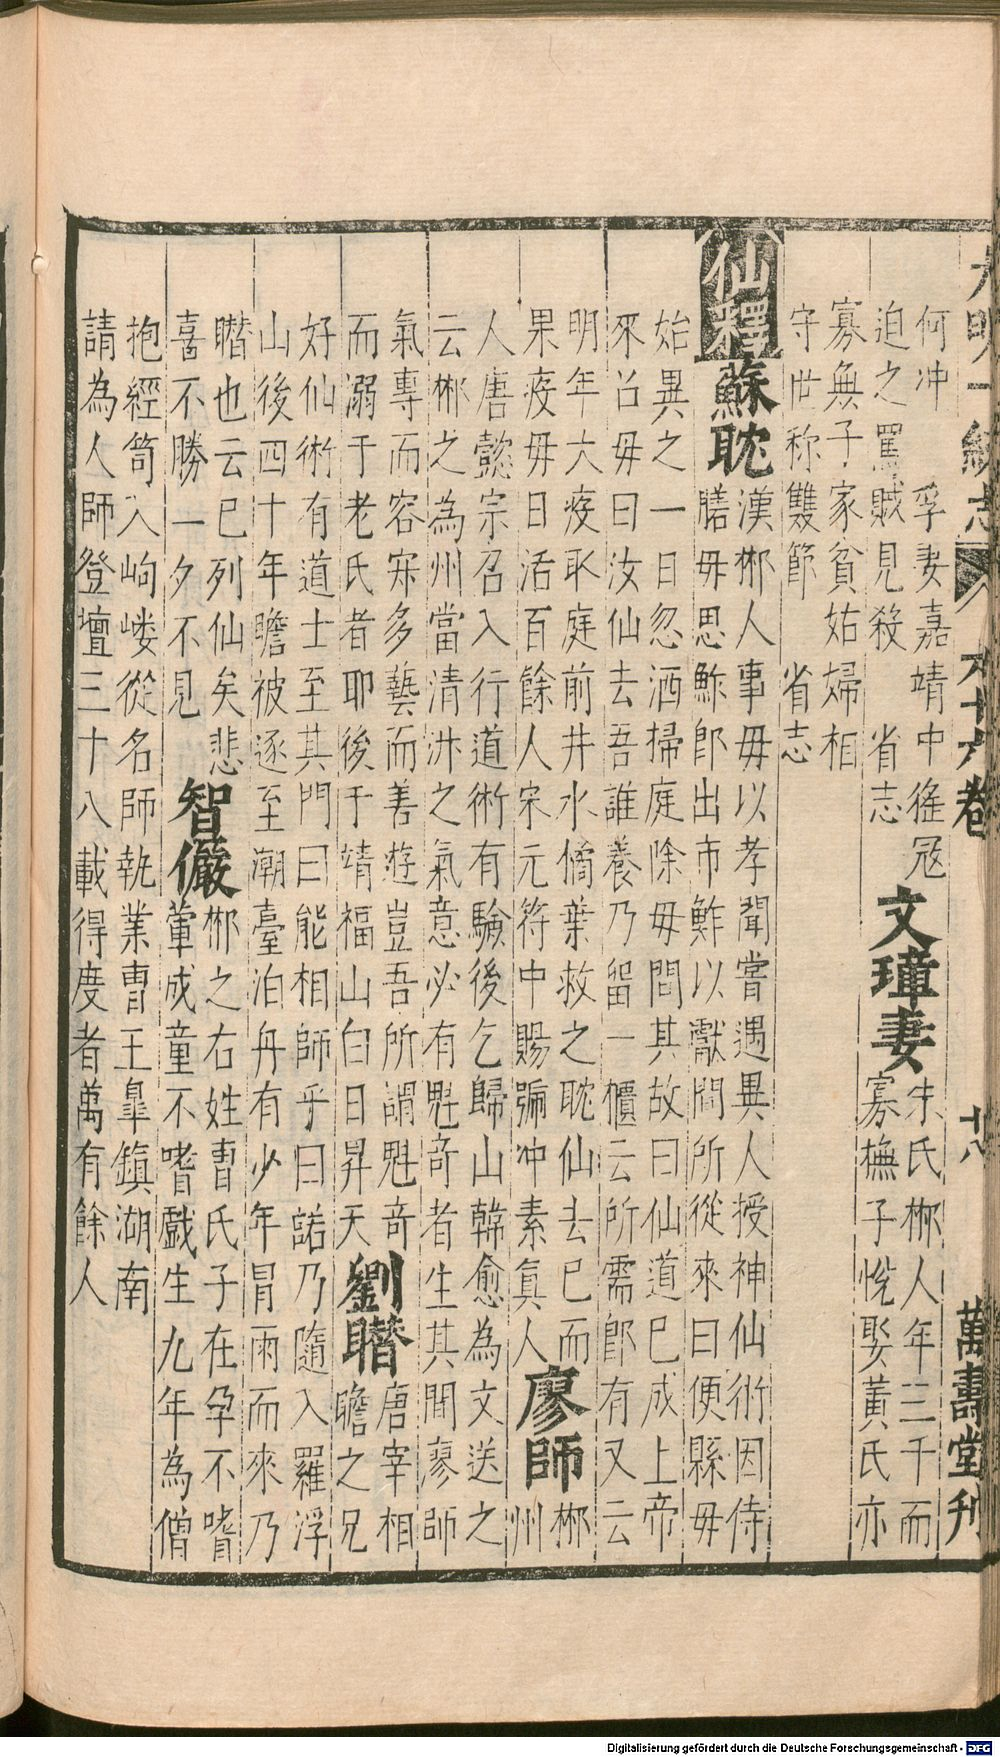 大明一統志 六十六卷 十八 萬壽堂刊
何冲 孚妻嘉靖中徭寇
迫之罵賊見殺 省志
文瑋妻
朱氏郴人年三千而
寡撫子悅娶黃氏亦
寡無子家貧姑婦相
守世称雙節 省志
仙釋
蘇耽
漢郴人事毋以孝聞嘗遇異人授神仙術因侍
膳毋思鮓郎出市鮓以獻問所從來曰便縣毋
始異之一日忽洒掃庭除毋問其故曰仙道巳成上帝
來召毋曰汝仙去吾誰養乃留一櫃云所需郎有又云
明年大疫取庭前井水橘葉救之耽仙去巳而
果疫毋日活百餘人宋元符中賜號冲素真人
廖師
郴
州
人唐懿宗召入行道術有驗後乞歸山韓愈為文送之
云郴之為州當清淑之氣意必有魁奇者生其間廖師
氣專而容寂多藝而善遊豈吾所謂魁奇
而溺于老氏者耶後于靖福山白日昇天
劉
唐宰相
瞻之兄
好仙術有道士至其門曰能相師乎曰諾乃隨入羅浮
山後四十年瞻被逐至潮臺泊舟有少年冒雨而來乃
也云已列仙矣悲
喜不勝一夕不見
智儼
郴之右姓曹氏子在孕不嗜
葷成童不嗜戲生九年為僧
抱經笥入岣嶁從名師執業曹王臯鎮湖南
請為人師登壇三十八載得度者萬有餘人
Digitalisierung gefördert durch die Deutsche Forschungsgemeinschaft - DFG